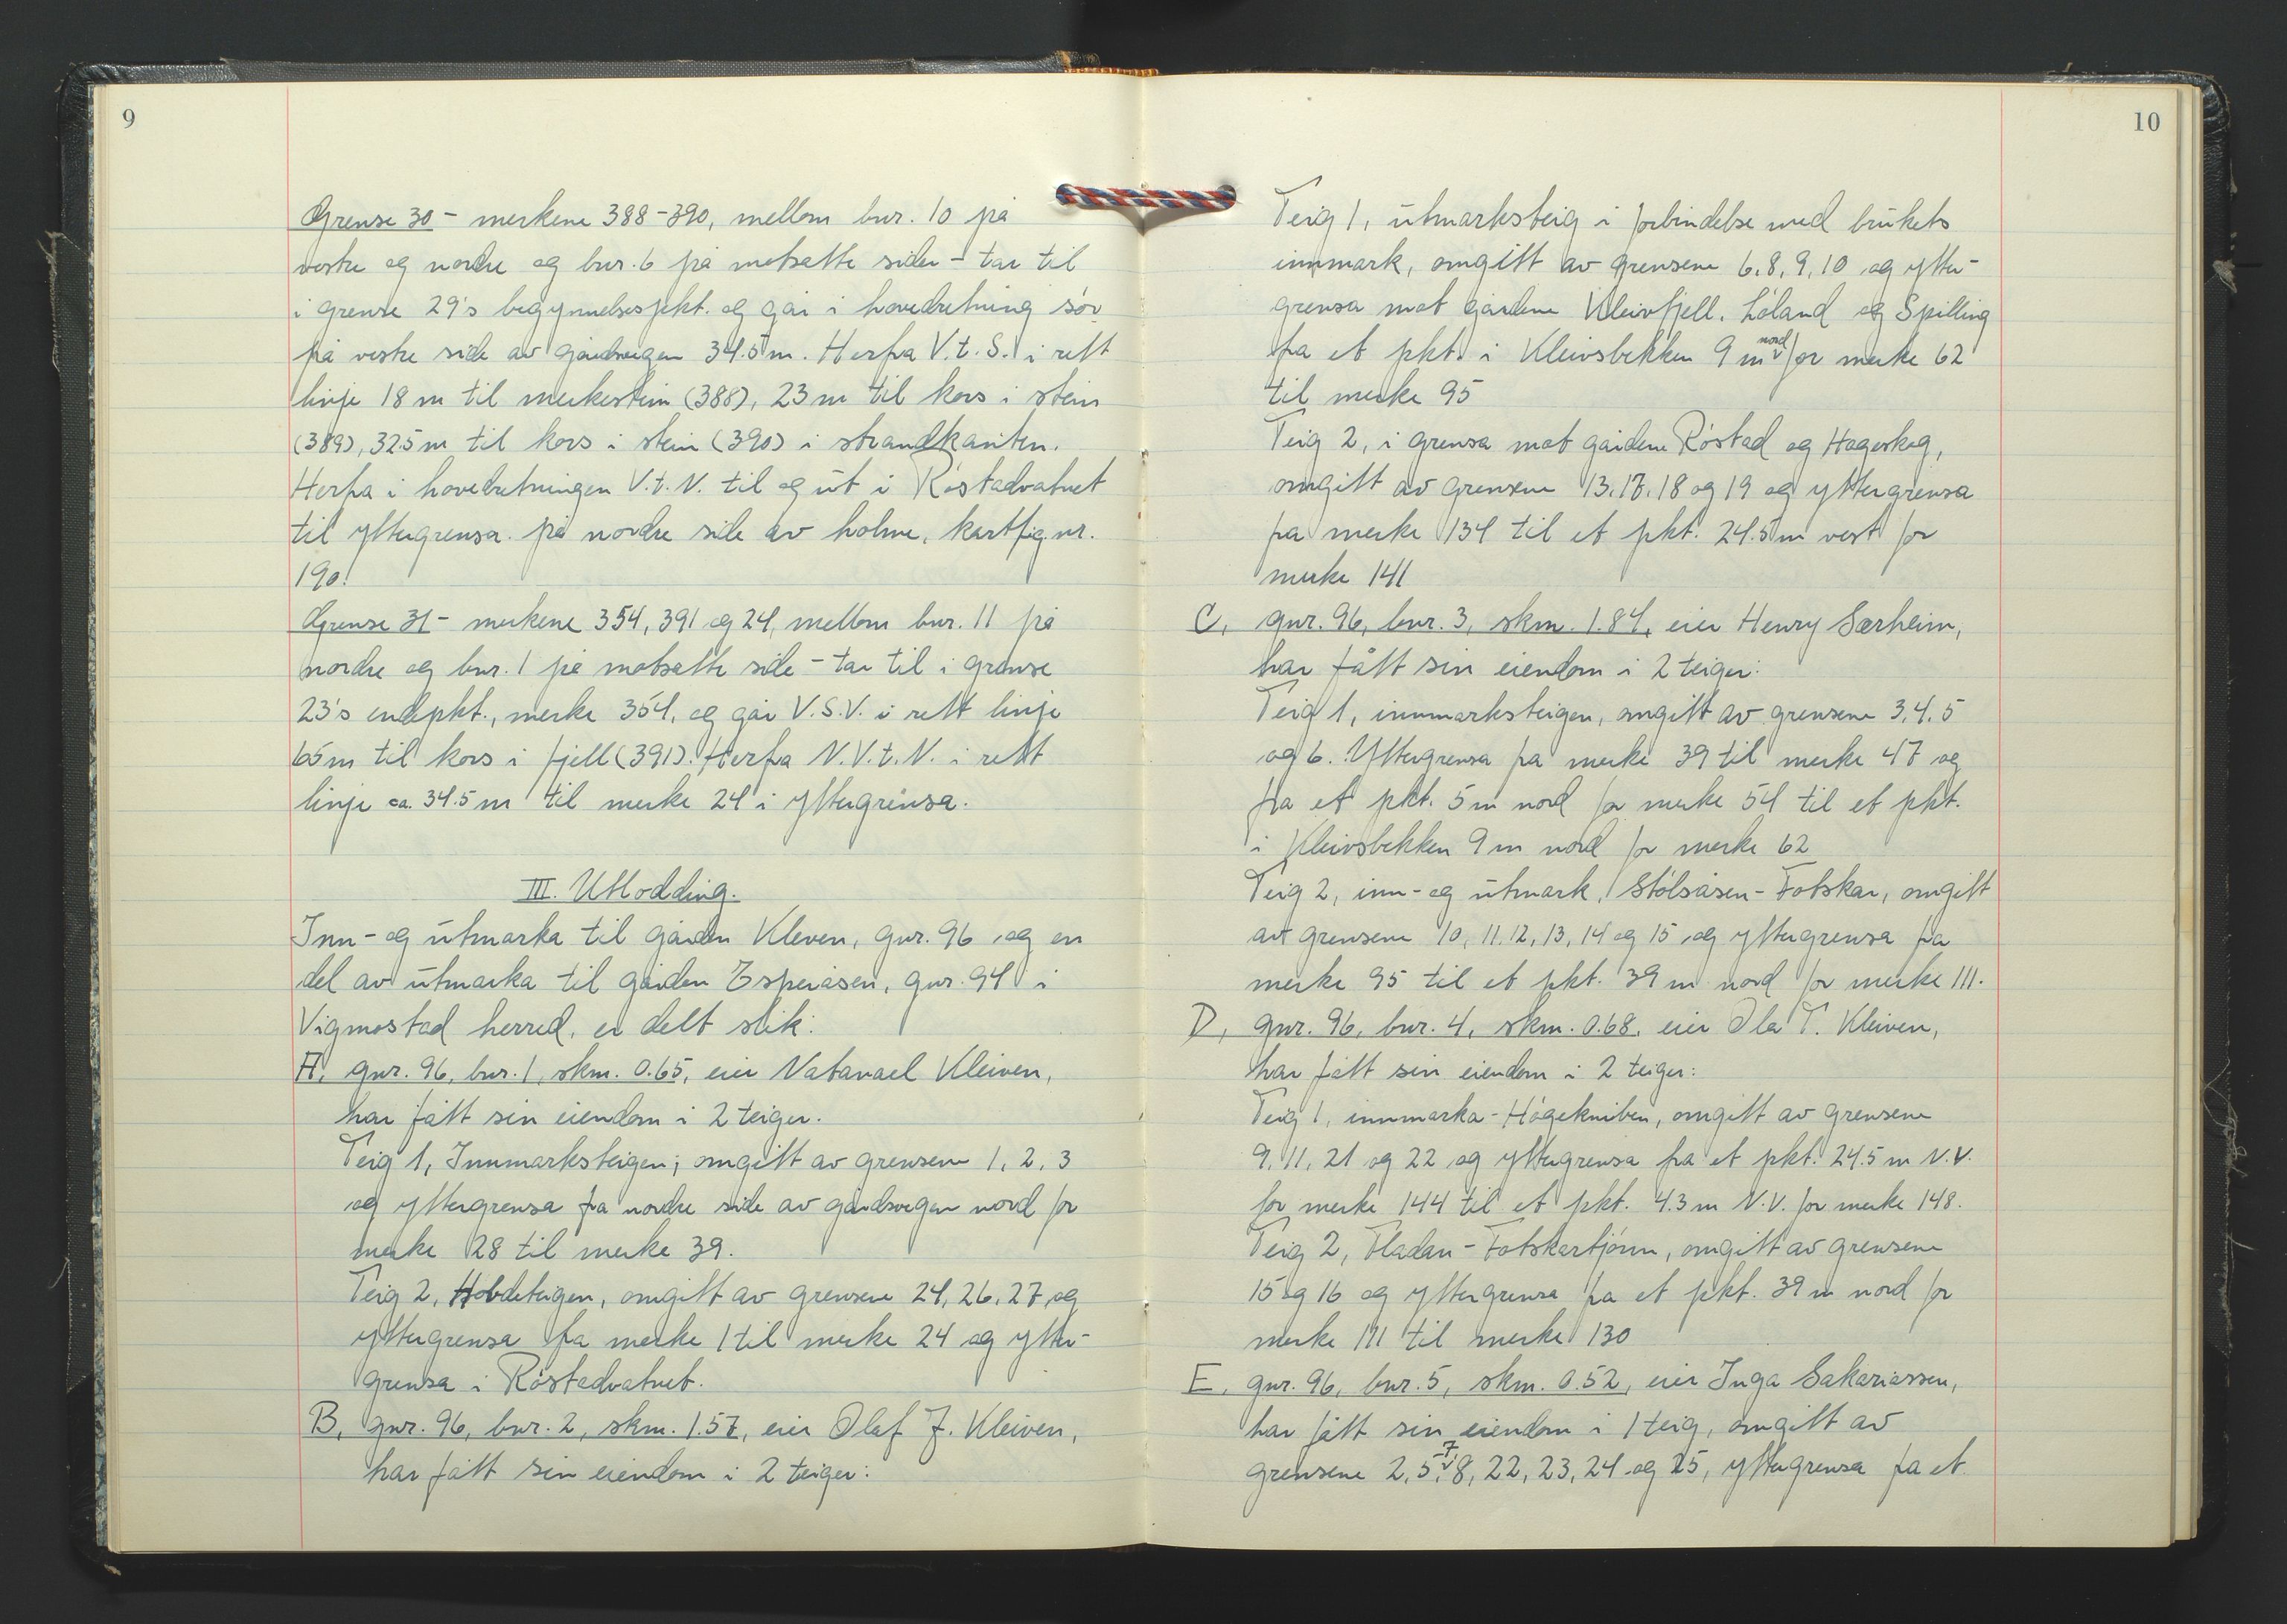 9
Grense 30 - merkene 388-390, mellom bnr. 10 på
vestre og nordre og bnr. 6 på motsatte sider - tar til
i grense 29's begynnelsespkt. og går i hovedretning sør
på vestre side av gårdsvegen 34.5 m. Herfra V.t.S. i rett
linje 18 m til merkestein (388), 23 m til kors i stein
(389), 32.5 m til kors i stein (390) i strandkanten.
Herfra i hovedretningen V.t.N. til og ut i Røstadvatnet
til yttergrensa på nordre side av holme, kartfig.nr.
190.
Grense 31 - merkene 354, 391 og 24, mellom bnr. 11 på
nordre og bnr. 1 på motsatte side - tar til i grense
23's endepkt., merke 354, og går V.S.V. i rett linje
65 m til kors i fjell (391). Herfra N.V.t.N. i rett
linje ca. 34.5 m til merke 24 i yttergrensa.
III. Utlodding.
Inn- og utmarka til gården Kleven, gnr. 96 og en
del av utmarka til gården Esperåsen, gnr. 94 i
Vigmostad herred, er delt slik:
A, gnr. 96, bnr. 1, skm. 0.65, eier Natanael Kleiven,
har fått sin eiendom i 2 teiger.
Teig 1, Innmarksteigen; omgitt av grensene 1, 2, 3
og yttergrensa fra nordre side av gårdsvegen nord for
merke 28 til merke 39.
Teig 2, Hobdeteigen, omgitt av grensene 24, 26, 27 og
yttergrensa fra merke 1 til merke 24 og ytter-
grensa i Røstadvatnet.
B, gnr. 96, bnr. 2, skm. 1.57, eier Olaf J. Kleiven,
har fått sin eiendom i 2 teiger:
10
Teig 1, utmarksteig i forbindelse med brukets
innmark, omgitt av grensene 6, 8, 9, 10 og ytter-
grensa mot gårdene Kleivfjell, Løland og Spilling
fra et pkt. i Kleivsbekken 9 m nord for merke 62
til merke 95
Teig 2, i grensa mot gårdene Røstad og Hageskog,
omgitt av grensene 13, 17, 18 og 19 og yttergrensa
fra merke 134 til et pkt. 24.5 m vest for
merke 141
C, gnr. 96, bnr. 3, skm. 1.84, eier Henry Særheim,
har fått sin eiendom i 2 teiger:
Teig 1, innmarksteigen, omgitt av grensene 3, 4, 5
og 6. Yttergrensa fra merke 39 til merke 47 og
fra et pkt. 5 m nord for merke 54 til et pkt.
i Kleivsbekken 9 m nord for merke 62
Teig 2, inn- og utmark, Stølsåsen - Fotskar, omgitt
av grensene 10, 11, 12, 13, 14 og 15 og yttergrensa fra
merke 95 til et pkt. 39 m nord for merke 111.
D, gnr. 96, bnr. 4, skm. 0.68, eier Ola T. Kleiven,
har fått sin eiendom i 2 teiger:
Teig 1, innmarka - Høgekniben, omgitt av grensene
9, 11, 21 og 22 og yttergrensa fra et pkt. 24.5 m N.V.
for merke 144 til et pkt. 4.3 m N.V. for merke 148.
Teig 2, Fladan - Fotskartjønn, omgitt av grensene
15 og 16 og yttergrensa fra et pkt. 39 m nord for
merke 111 til merke 130
E, gnr. 96, bnr. 5, skm. 0.52, eier Inga Sakariassen,
har fått sin eiendom i 1 teig, omgitt av
grensene 2, 5, 7, 8, 22, 23, 24 og 25, yttergrensa fra et